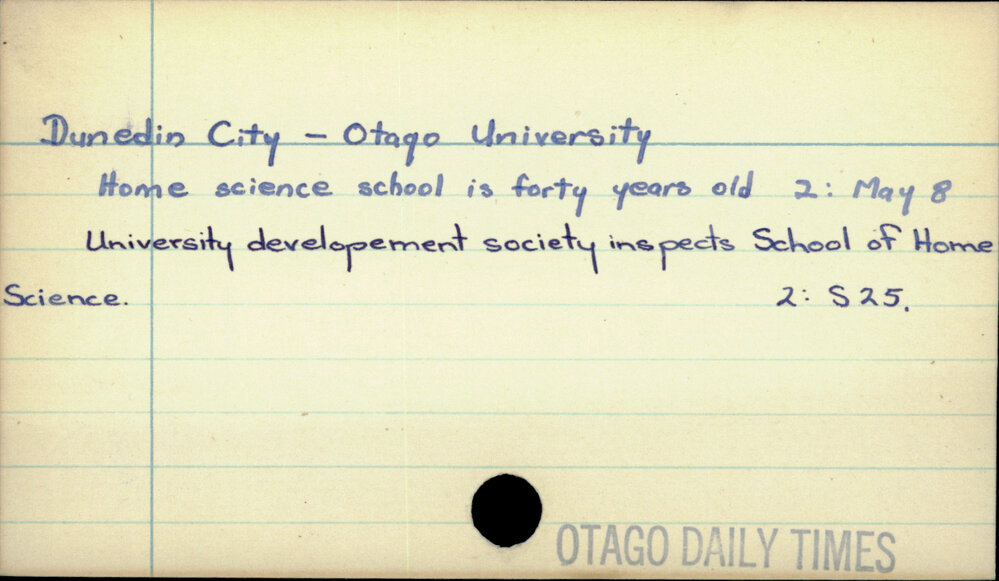 Dunedin City - Otago University
Home science school is forty years old 2: May 8
University developement society inspects School of Home
Science. 2: S 25.
OTAGO DAILY TIMES